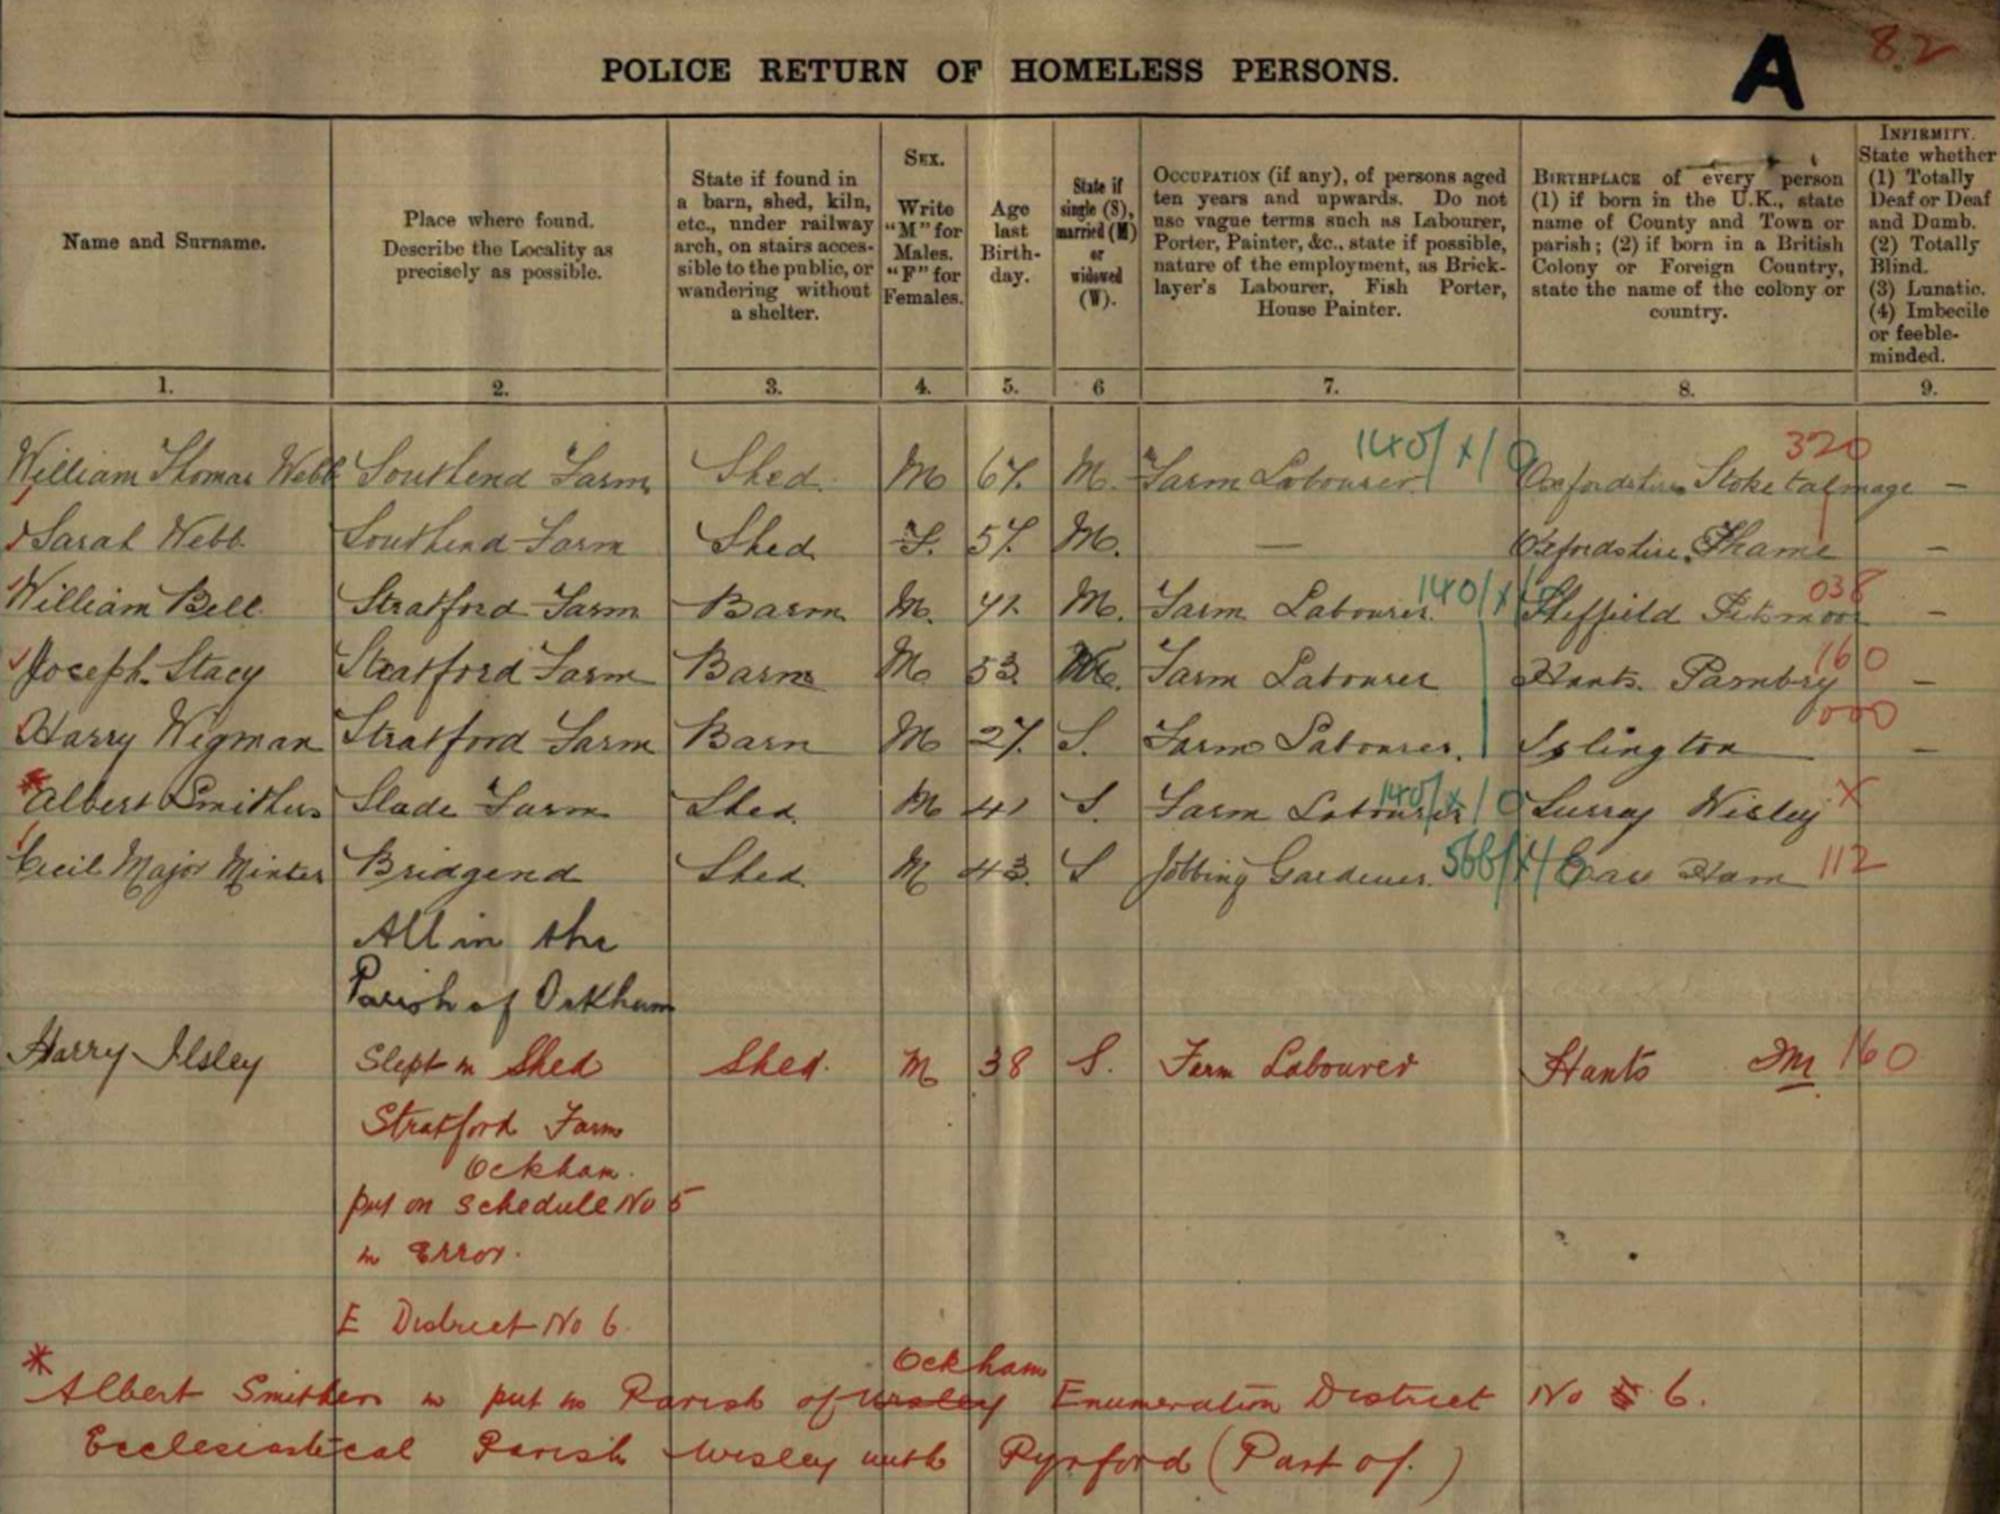 POLICE RETURN OF HOMELESS PERSONS.
A
82
Name and Surname.
Place where found.
Describe the Locality as
precisely as possible.
State if found in
a barn, shed, kiln,
etc., under railway
arch, on stairs acces-
sible to the public, or
wandering without
a shelter.
SEX.
Write
"M" for
Males.
"F" for
Females.
Age
last
Birth-
day.
State if
single (S),
married (M)
or
widowed
(W).
OCCUPATION (if any), of persons aged
ten years and upwards. Do not
use vague terms such as Labourer,
Porter, Painter, &c., state if possible,
nature of the employment, as Brick-
layer's Labourer, Fish Porter,
House Painter.
BIRTHPLACE of every person
(1) if born in the U.K., state
name of County and Town or
parish; (2) if born in a British
Colony or Foreign Country,
state the name of the colony or
country.
INFIRMITY.
State whether
(1) Totally
Deaf or Deaf
and Dumb.
(2) Totally
Blind.
(3) Lunatic.
(4) Imbecile
or feeble-
minded.
1. 2. 3. 4. 5. 6 7. 8. 9.
140/x/0 320
William Thomas Webb Southend Farm Shed. M 67. M. Farm Labourer. Oxfordshire Stoke talmage –
Sarah Webb. Southend Farm Shed F. 57. M. — Oxfordshire. Thame –
140/x/0 038
William Bell. Stratford Farm Barn M. 71. M. Farm Labourer. Sheffield –
160
Joseph. Stacy Stratford Farm Barn M 53. Farm Labourer Hants. –
000
Harry Wigman Stratford Farm Barn M 27. S. Farm Labourer. Islington –
140/x/0 x
*Albert Smithers Slade Farm Shed. M 41 S. Farm Labourer Surrey Wisley
566/x/ 112
Cecil Major Minter Bridgend Shed. M 43. S Jobbing Gardener. Ham
All in the
Parish of Ockham
Harry Ilsley Slept in Shed Shed. M 38 S. Farm Labourer Hants M 160
Stratford Farm
Ockham.
put on schedule No 5
in Error.
E District No 6.
Ockham
* Albert Smithers is put in Parish of Wisley Enumeration District No 6.
Ecclesiastical Parish Wisley with Pyrford (Part of.)